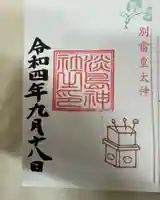 別雷皇太神
淡島神
社之印
令和四年九月十八日